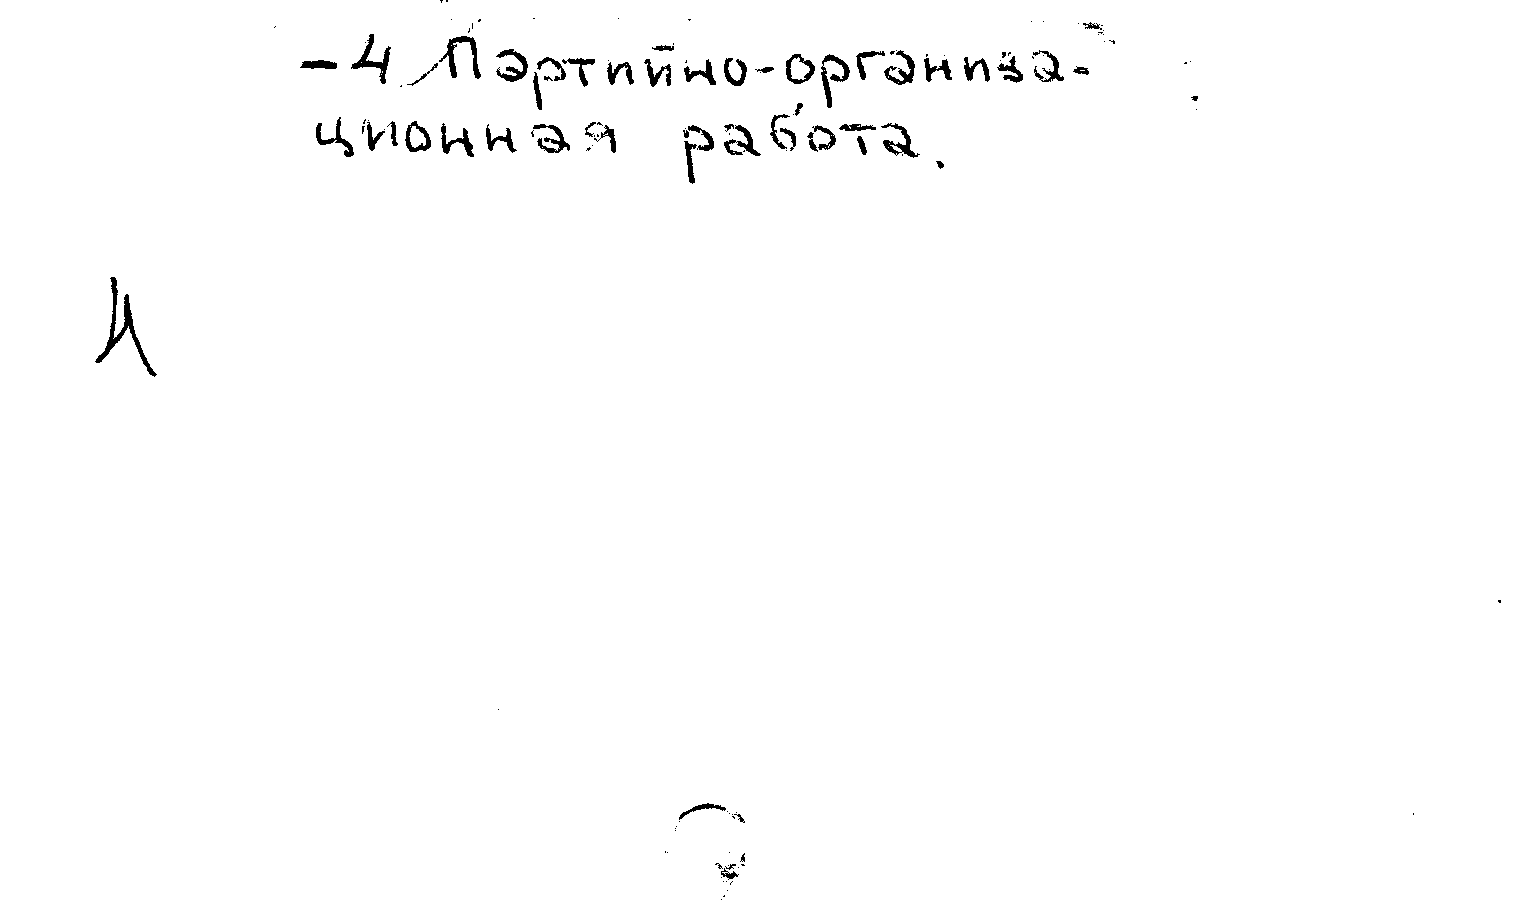 -4 Партийно-организа-
ционная работа.